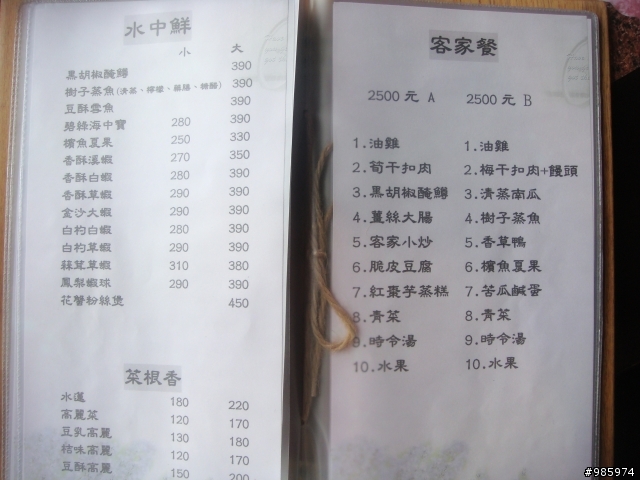 水中鮮
小 大
黑胡椒醃鱘 390
樹子蒸魚(清蒸、檸檬、糖醋) 390
豆酥雪魚 390
碧綠海中寶 280 390
檳魚夏果 250 330
香酥溪蝦 270 350
香酥白蝦 280 390
香酥草蝦 290 390
金沙大蝦 290 390
白灼白蝦 280 390
白灼草蝦 290 390
蒜茸草蝦 310 380
鳳梨蝦球 290 390
花蟹粉絲煲 450
菜根香
水蓮 180 220
高麗菜 120 170
豆乳高麗 130 180
枯味高麗 120 170
豆酥高麗 150 200
客家餐
2500元 A 2500元 B
1.油雞 1.油雞
2.筍干扣肉 2.梅干扣肉+饅頭
3.黑胡椒醃鱘 3.清蒸南瓜
4.薑絲大腸 4.樹子蒸魚
5.客家小炒 5.香草鴨
6.脆皮豆腐 6.檳魚夏果
7.紅棗芋蒸糕 7.苦瓜鹹蛋
8.青菜 8.青菜
9.時令湯 9.時令湯
10.水果 10.水果
#985974